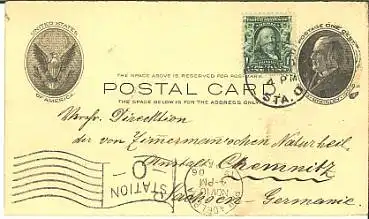 UNITED STATES
OF AMERICA
POSTAGE ONE CENT
THE SPACE ABOVE IS RESERVED FOR POSTMARK
POSTAL CARD
THE SPACE BELOW IS FOR THE ADDRESS ONLY
4 PM
STA. O
Direcktion
der von Zimermann'schen Naturheil
Anstalt Chemnitz
Sachsen - Germanie.
STATION
O
NOV 10
PM
06